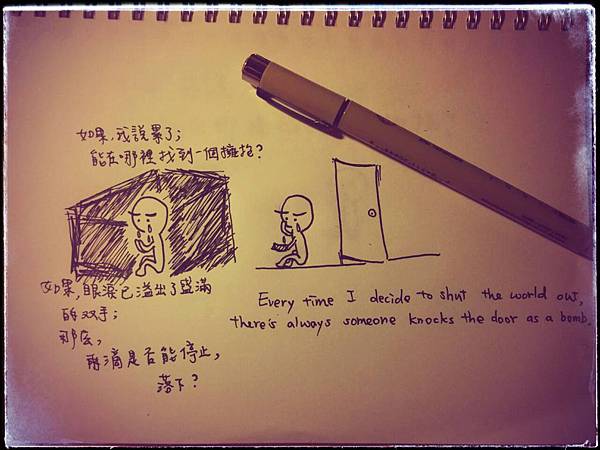 如果,我說累了;
能在哪裡找到一個擁抱?
如果,眼淚已溢出了盛滿
的双手;
那麼,
雨滴是否能停止,
落下?
Every time I decide to shut the world out,
there's always someone knocks the door as a bomb.